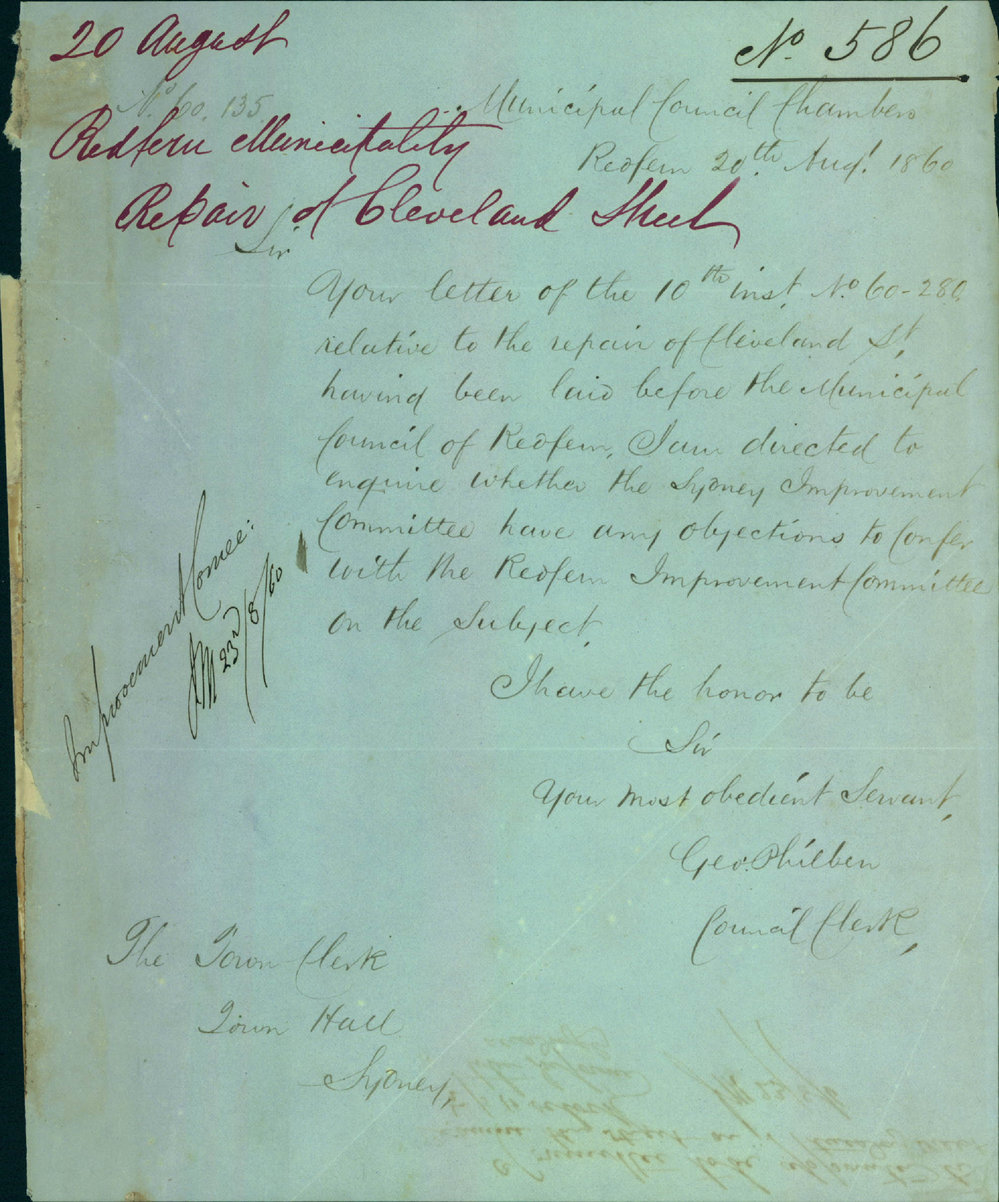 20 August
No. 586
No. 60. 135.
Municipal Council Chambers
Redfern Municipality
Redfern 20th. Augt. 1860
Repair of Cleveland Street
Sir
Your letter of the 10th inst. No. 60-280
relative to the repair of Cleveland St.
having been laid before the Municipal
Council of Redfern, I am directed to
enquire whether the Sydney Improvement
Committee have any objections to Confer
with the Redfern Improvement Committee
on the Subject.
Improvement Comee:
JM 23rd/8/60
I have the honor to be
Sir
Your most obedient Servant,
Geo. Philben
Council Clerk,
The Town Clerk
Town Hall
Sydney,